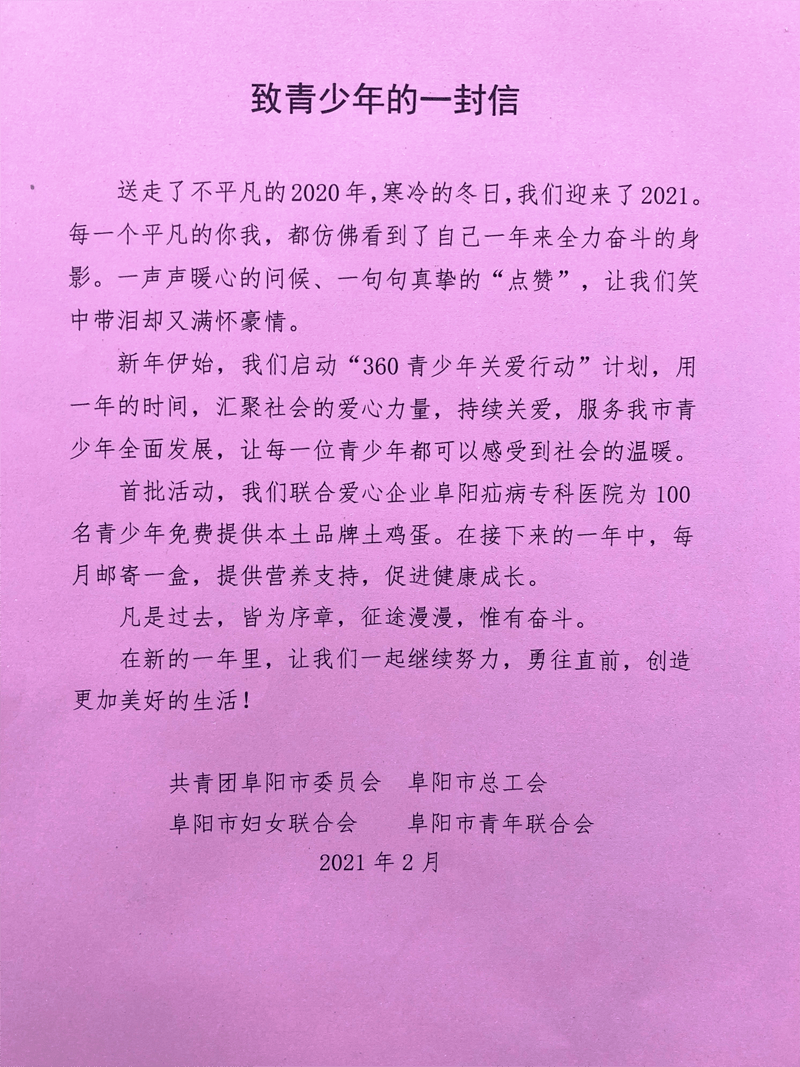 致青少年的一封信
送走了不平凡的2020年，寒冷的冬日，我们迎来了2021。
每一个平凡的你我，都仿佛看到了自己一年来全力奋斗的身
影。一声声暖心的问候、一句句真挚的“点赞”，让我们笑
中带泪却又满怀豪情。
新年伊始，我们启动“360青少年关爱行动”计划，用
一年的时间，汇聚社会的爱心力量，持续关爱，服务我市青
少年全面发展，让每一位青少年都可以感受到社会的温暖。
首批活动，我们联合爱心企业阜阳疝病专科医院为100
名青少年免费提供本土品牌土鸡蛋。在接下来的一年中，每
月邮寄一盒，提供营养支持，促进健康成长。
凡是过去，皆为序章，征途漫漫，惟有奋斗。
在新的一年里，让我们一起继续努力，勇往直前，创造
更加美好的生活！
共青团阜阳市委员会 阜阳市总工会
阜阳市妇女联合会 阜阳市青年联合会
2021年2月